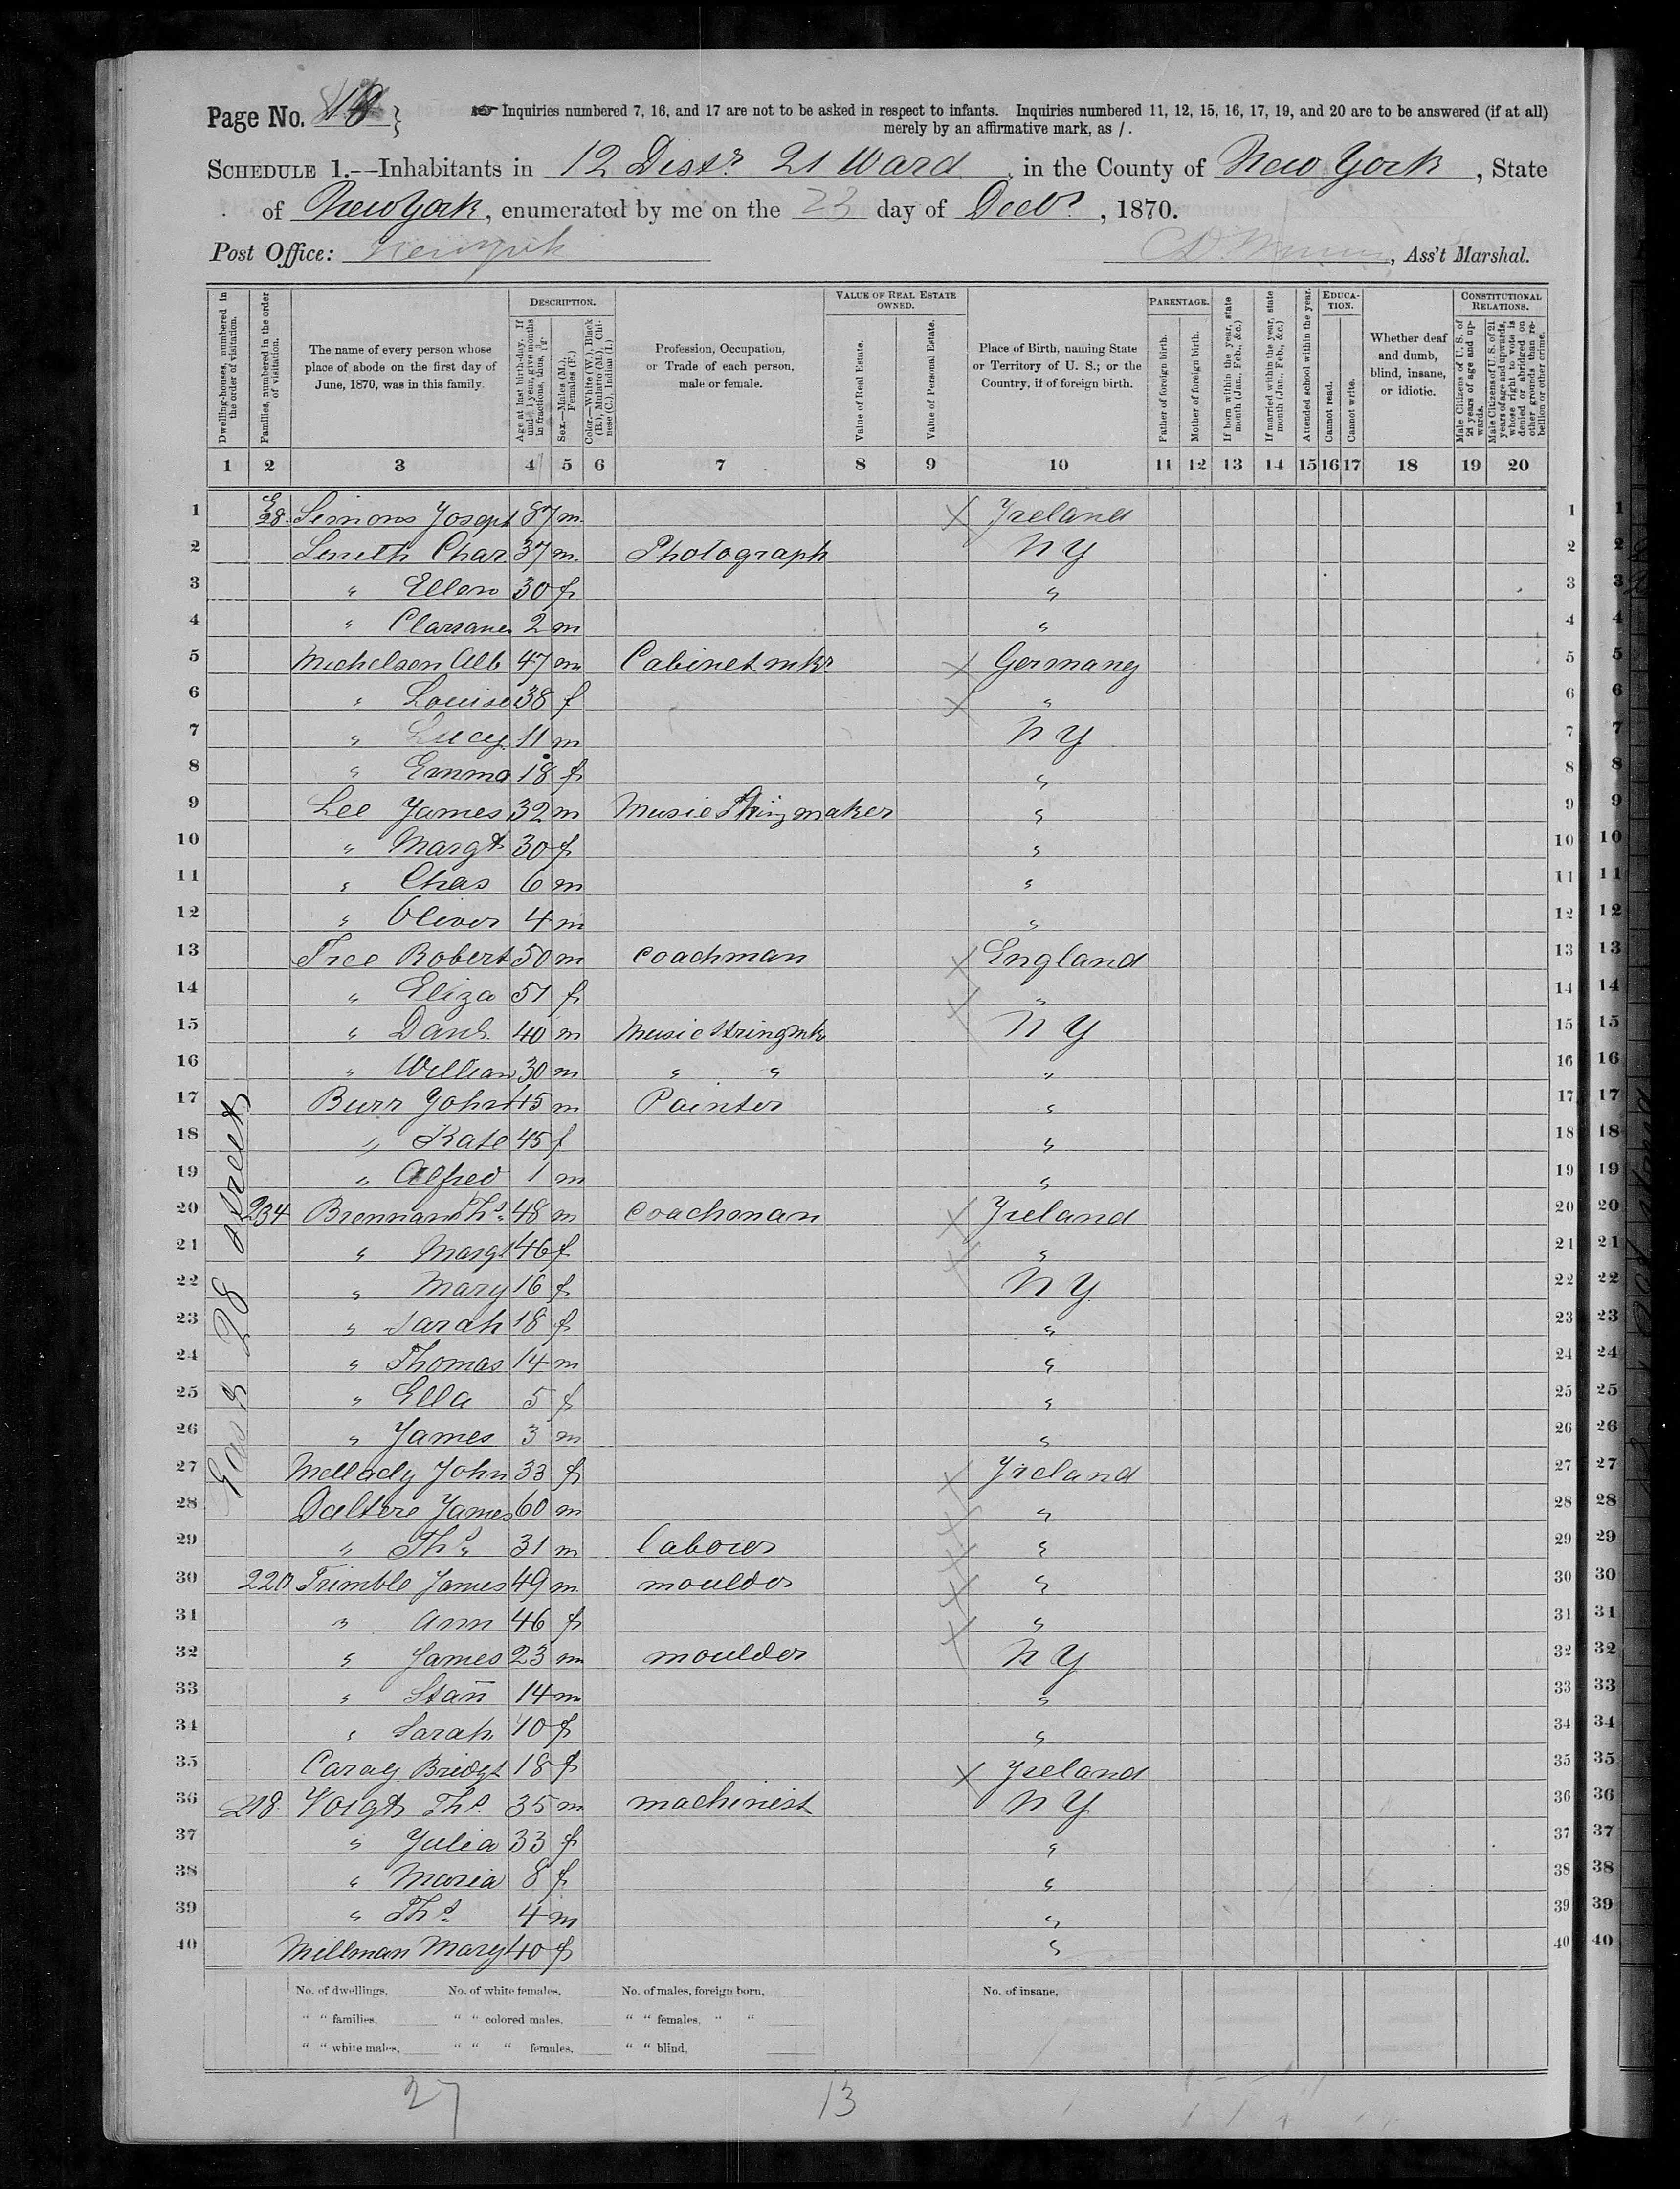 Page No.
Inquiries numbered 7, 16, and 17 are not to be asked in respect to infants. Inquiries numbered 11, 12, 15, 16, 17, 19, and 20 are to be answered (if at all)
merely by an affirmative mark, as /.
SCHEDULE 1.--Inhabitants in 12 Distr. 21 Ward, in the County of New York, State
of New York, enumerated by me on the 23 day of Decbr, 1870.
Post Office: New York , Ass't Marshal.
Dwelling-houses, numbered in the order of visitation.
Families, numbered in the order of visitation.
The name of every person whose place of abode on the first day of June, 1870, was in this family.
DESCRIPTION.
Age at last birth-day. If under 1 year, give months in fractions, thus, 3/12.
Sex.—Males (M.), Females (F.)
Color.—White (W.), Black (B.), Mulatto (M.), Chinese (C.), Indian (I.)
Profession, Occupation, or Trade of each person, male or female.
VALUE OF REAL ESTATE OWNED.
Value of Real Estate.
Value of Personal Estate.
Place of Birth, naming State or Territory of U. S.; or the Country, if of foreign birth.
PARENTAGE.
Father of foreign birth.
Mother of foreign birth.
If born within the year, state month (Jan., Feb., &c.)
If married within the year, state month (Jan., Feb., &c.)
Attended school within the year.
EDUCATION.
Cannot read.
Cannot write.
Whether deaf and dumb, blind, insane, or idiotic.
CONSTITUTIONAL RELATIONS.
Male Citizens of U. S. of 21 years of age and upwards.
Male Citizens of U. S. of 21 years of age and upwards, whose right to vote is denied or abridged on other grounds than rebellion or other crime.
1 2 3 4 5 6 7 8 9 10 11 12 13 14 15 16 17 18 19 20
1 Simons Joseph 87 m X Ireland 1
2 Smith Char. 37 m. Photograph N Y 2
3 " Ellen 30 f " 3
4 " 2 m " 4
5 Michelsen Alb 47 m Cabinet mkr X Germany 5
6 " Louise 38 f X " 6
7 " Lucy 11 m N Y 7
8 " Emma 18 f " 8
9 Lee James 32 m Music String maker " 9
10 " Margt 30 f " 10
11 " Chas 6 m " 11
12 " Oliver 4 m " 12
13 Tree Robert 50 m Coachman X England 13
14 " Eliza 51 f X " 14
15 " Danl. 40 m Music String mk N Y 15
16 " William 30 m " " " 16
17 Burr John 45 m Painter " 17
18 " Kate 45 f " 18
19 " Alfred 1 m " 19
20 234 Brennan Ths. 48 m Coachman X Ireland 20
21 " Margt 46 f X " 21
22 " Mary 16 f N Y 22
23 " Sarah 18 f " 23
24 " Thomas 14 m " 24
25 " Ella 5 f " 25
26 " James 3 m " 26
27 Mellady John 33 f X Ireland 27
28 James 60 m X " 28
29 " Ths. 31 m Laborer X " 29
30 220 Trimble James 49 m moulder X " 30
31 " Ann 46 f X " 31
32 " James 23 m moulder N Y 32
33 " 14 m " 33
34 " Sarah 10 f " 34
35 Caray Bridgt 18 f X Ireland 35
36 218. Voigt Ths. 35 m machinist N Y 36
37 " Julia 33 f " 37
38 " Maria 8 f " 38
39 " Ths. 4 m " 39
40 Millman Mary 40 f " 40
East 28 street
No. of dwellings, No. of white females, No. of males, foreign born, No. of insane,
" " families, " " colored males, " " females, " "
" " white males, " " " females, " " blind,
27 13